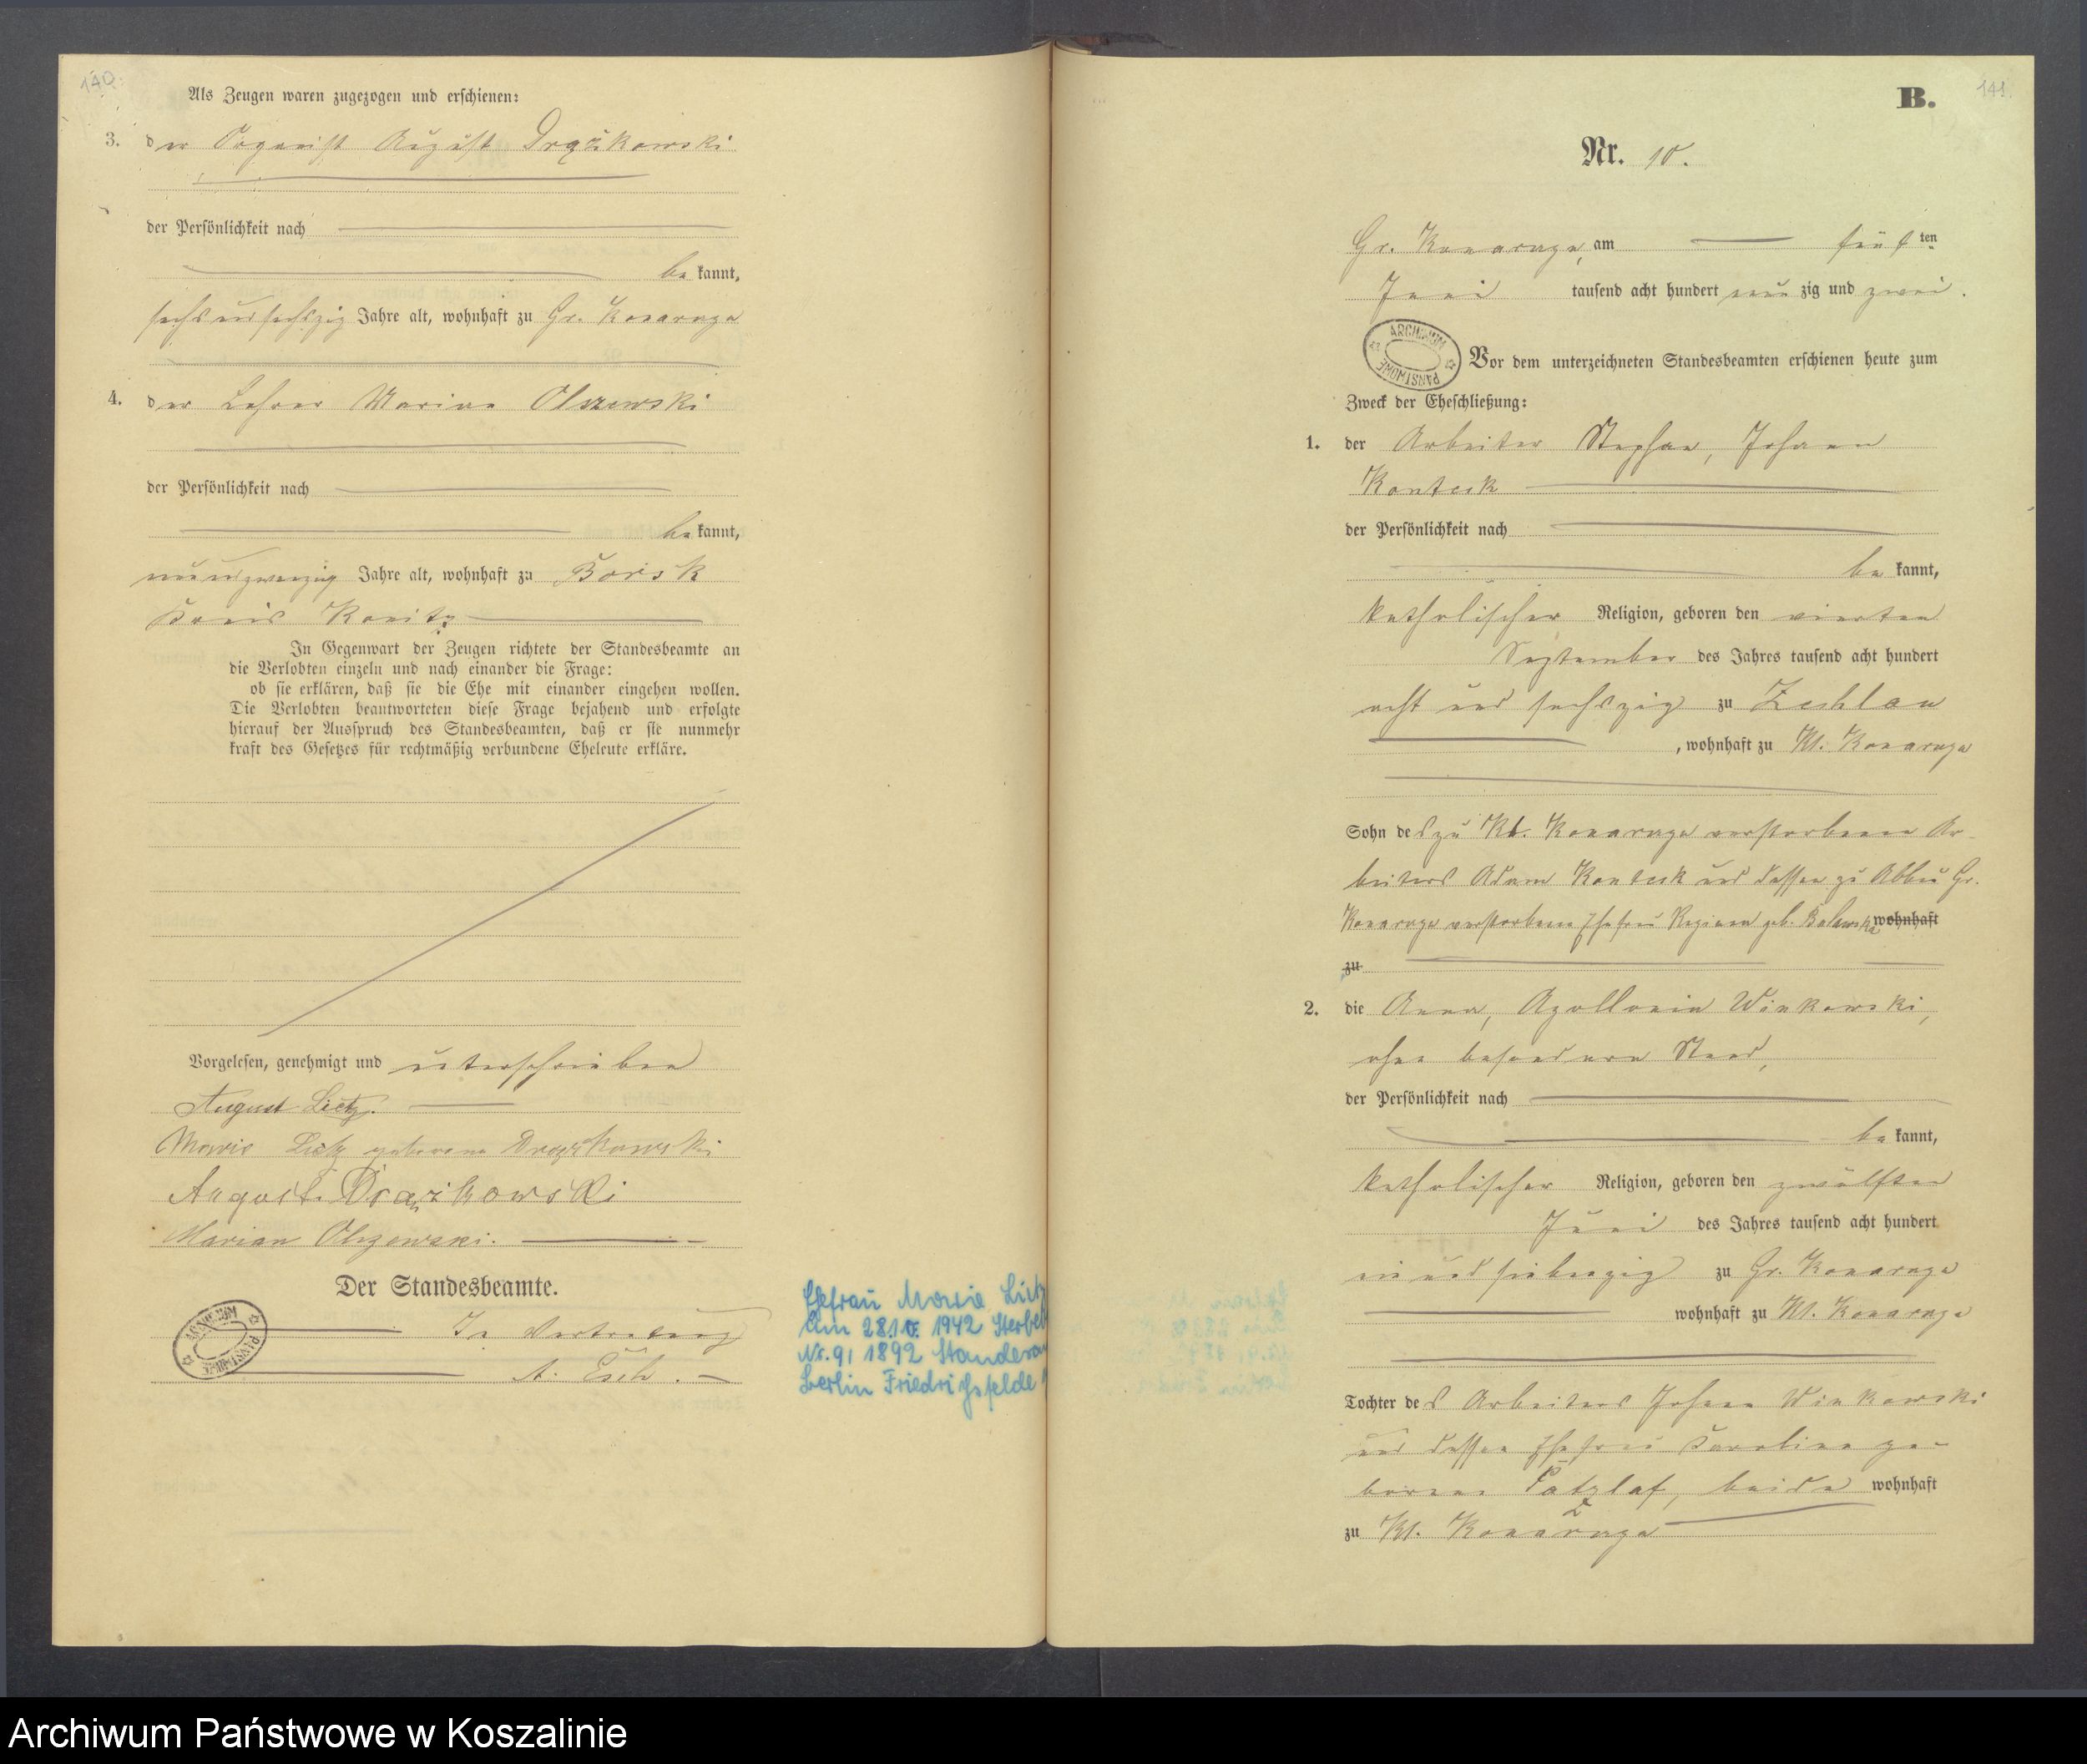 140.
Als Zeugen waren zugezogen und erschienen:
3. der Organist August Drążkowski
der Persönlichkeit nach
be kannt,
sechsundsechszig Jahre alt, wohnhaft zu Gr. Konarzyn
4. der Lehrer Marian Olszewski
der Persönlichkeit nach
be kannt,
neunundzwanzig Jahre alt, wohnhaft zu Borsk
Kreis Konitz
In Gegenwart der Zeugen richtete der Standesbeamte an
die Verlobten einzeln und nach einander die Frage:
ob sie erklären, daß sie die Ehe mit einander eingehen wollen.
Die Verlobten beantworteten diese Frage bejahend und erfolgte
hierauf der Ausspruch des Standesbeamten, daß er sie nunmehr
kraft des Gesetzes für rechtmäßig verbundene Eheleute erkläre.
Vorgelesen, genehmigt und unterschrieben
August Lietz.
Marie Lietz geborene Drążkowski
August Drążkowski
Marian Olszewski.
Der Standesbeamte.
In Vertretung
A. Esch.
ARCHIWUM PAŃSTWOWE
Ehefrau Marie Lietz
am 28.10. 1942 Sterbeb
Nr. 91 1892 Standesam
Berlin Friedrichsfelde
141.
B.
Nr. 10.
Gr. Konarzyn, am fünften
Juni tausend acht hundert neunzig und zwei.
ARCHIWUM PAŃSTWOWE
Vor dem unterzeichneten Standesbeamten erschienen heute zum
Zweck der Eheschließung:
1. der Arbeiter Stephan, Johann
Konteck
der Persönlichkeit nach
be kannt,
katholischer Religion, geboren den vierten
September des Jahres tausend acht hundert
acht und sechszig zu Zechlau
, wohnhaft zu Kl. Konarzyn
Sohn des zu Kl. Konarzyn verstorbenen Ar-
beiters Adam Konteck und dessen zu Abbau Gr.
Konarzyn verstorbene Ehefrau Regina geb. wohnhaft
zu
2. die Anna, Apollonia Winkowski,
ohne besonderen Stand,
der Persönlichkeit nach
be kannt,
katholischer Religion, geboren den zwölften
Juni des Jahres tausend acht hundert
ein und siebenzig zu Gr. Konarzyn
wohnhaft zu Kl. Konarzyn
Tochter des Arbeiters Johann Winkowski
und dessen Ehefrau Karoline ge-
borene Patzlaf, beide wohnhaft
zu Kl. Konarzyn
Archiwum Państwowe w Koszalinie